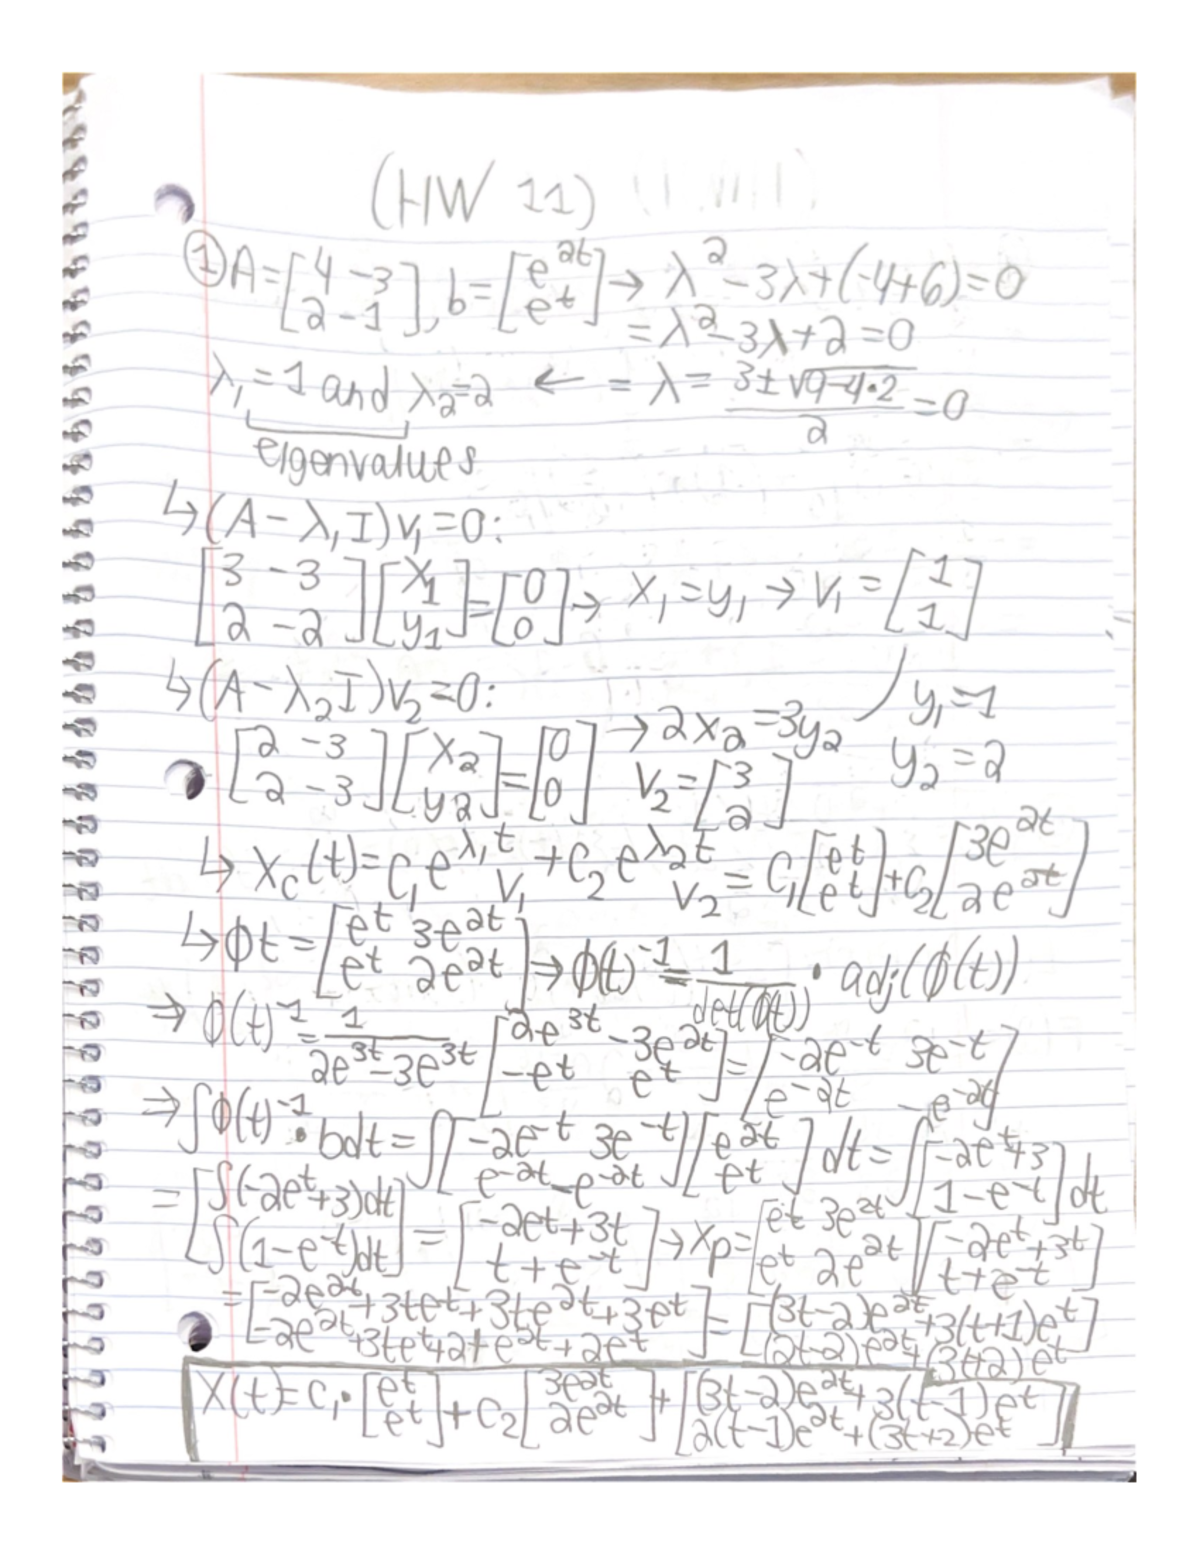 (HW 11)
① A = [4 -3; 2 -1], b = [e^2t; e^t] → λ^2 - 3λ + (-4+6) = 0
= λ^2 - 3λ + 2 = 0
λ₁ = 1 and λ₂ = 2 ← = λ = (3 ± √(9-4•2))/2 = 0
eigenvalues
↳ (A - λ₁I)v₁ = 0:
[3 -3; 2 -2][x₁; y₁] = [0; 0] → x₁ = y₁ → v₁ = [1; 1]
↳ (A - λ₂I)v₂ = 0:
/ y₁ = 1
[2 -3; 2 -3][x₂; y₂] = [0; 0] → 2x₂ = 3y₂
v₂ = [3; 2]
y₂ = 2
↳ x_c(t) = c₁e^λ₁t v₁ + c₂e^λ₂t v₂ = c₁[e^t; e^t] + c₂[3e^2t; 2e^2t]
↳ φt = [e^t 3e^2t; e^t 2e^2t] ⇒ φ(t)^-1 = 1/det(φ(t)) • adj(φ(t))
⇒ φ(t)^-1 = 1/(2e^3t - 3e^3t) [2e^3t -3e^2t; -e^t e^t] = [-2e^-t 3e^-t; e^-2t -e^-2t]
⇒ ∫φ(t)^-1 • b dt = ∫[-2e^-t 3e^-t; e^-2t -e^-2t][e^2t; e^t] dt = ∫[-2e^t+3; 1-e^-t] dt
= [∫(-2e^t+3)dt; ∫(1-e^-t)dt] = [-2e^t+3t; t+e^-t] → x_p = [e^t 3e^2t; e^t 2e^2t][-2e^t+3t; t+e^-t]
= [-2e^2t+3te^t+3te^2t+3e^t; -2e^2t+3te^t+2te^2t+2e^t] = [(3t-2)e^2t+3(t+1)e^t; (2t-2)e^2t+(3t+2)e^t]
X(t) = c₁•[e^t; e^t] + c₂[3e^2t; 2e^2t] + [(3t-2)e^2t+3(t-1)e^t; 2(t-1)e^2t+(3t+2)e^t]